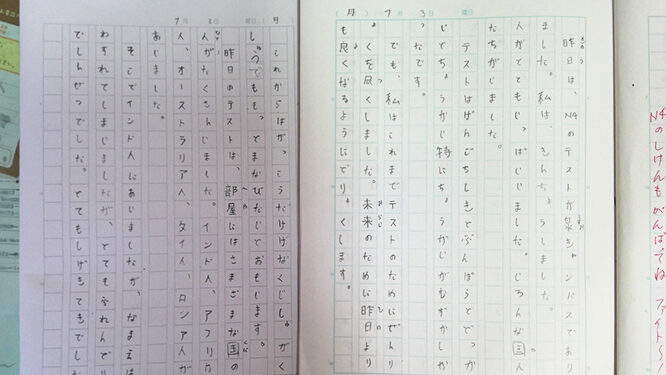 N4のしけんも ファイト〜
7月3日 曜日（月
昨日は、N4のテストが泉キャンパスであり
ました。私は、きんちょうしました。
人がとてもいっぱいいました。いろんな国人
たちがいました。
テストはげんごちしきとぶんぽうとどっか
いとちょうかい特にちょうかいがむずかしか
ったです。
でも、私はこれまでテストのためにぜんり
ょくを尽くしました。未来のために昨日より
も良くなるようにどりょくします。
7月3日 曜日（月
これからはがっこうだけでなくじしゅがく
しゅうでももっとまなびたいとおもいます。
昨日のテストは、部屋にはさまざまな国の
人がたくさんいました。インド人、アフリカ
人、オーストラリア人、タイ人、ロシア人が
あいました。
そこでインド人にあいましたが、なまえは
わすれてしまいましたが、とてもふれんどり
でしんせつでした。とてもしげきてきでした